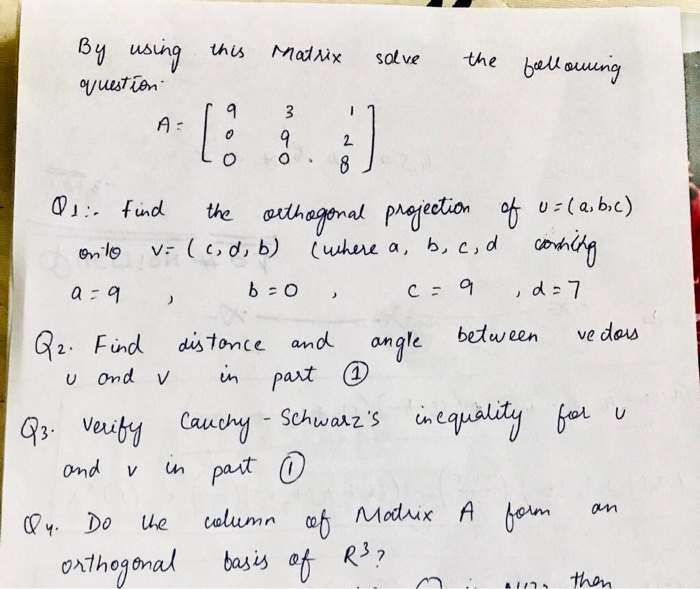 By using this Matrix solve the following
question.
A = [ 9 3 1
0 9 2
0 0 . 8 ]
Q1:- Find the orthogonal projection of u=(a,b,c)
onto v= (c,d,b) (where a, b, c, d
a = 9 , b = 0 , c = 9 , d = 7
Q2. Find distance and angle between vectors
u and v in part ①
Q3. Verify Cauchy - Schwarz's inequality for u
and v in part ①
Q4. Do the column of Matrix A form an
orthogonal basis of R³?
then